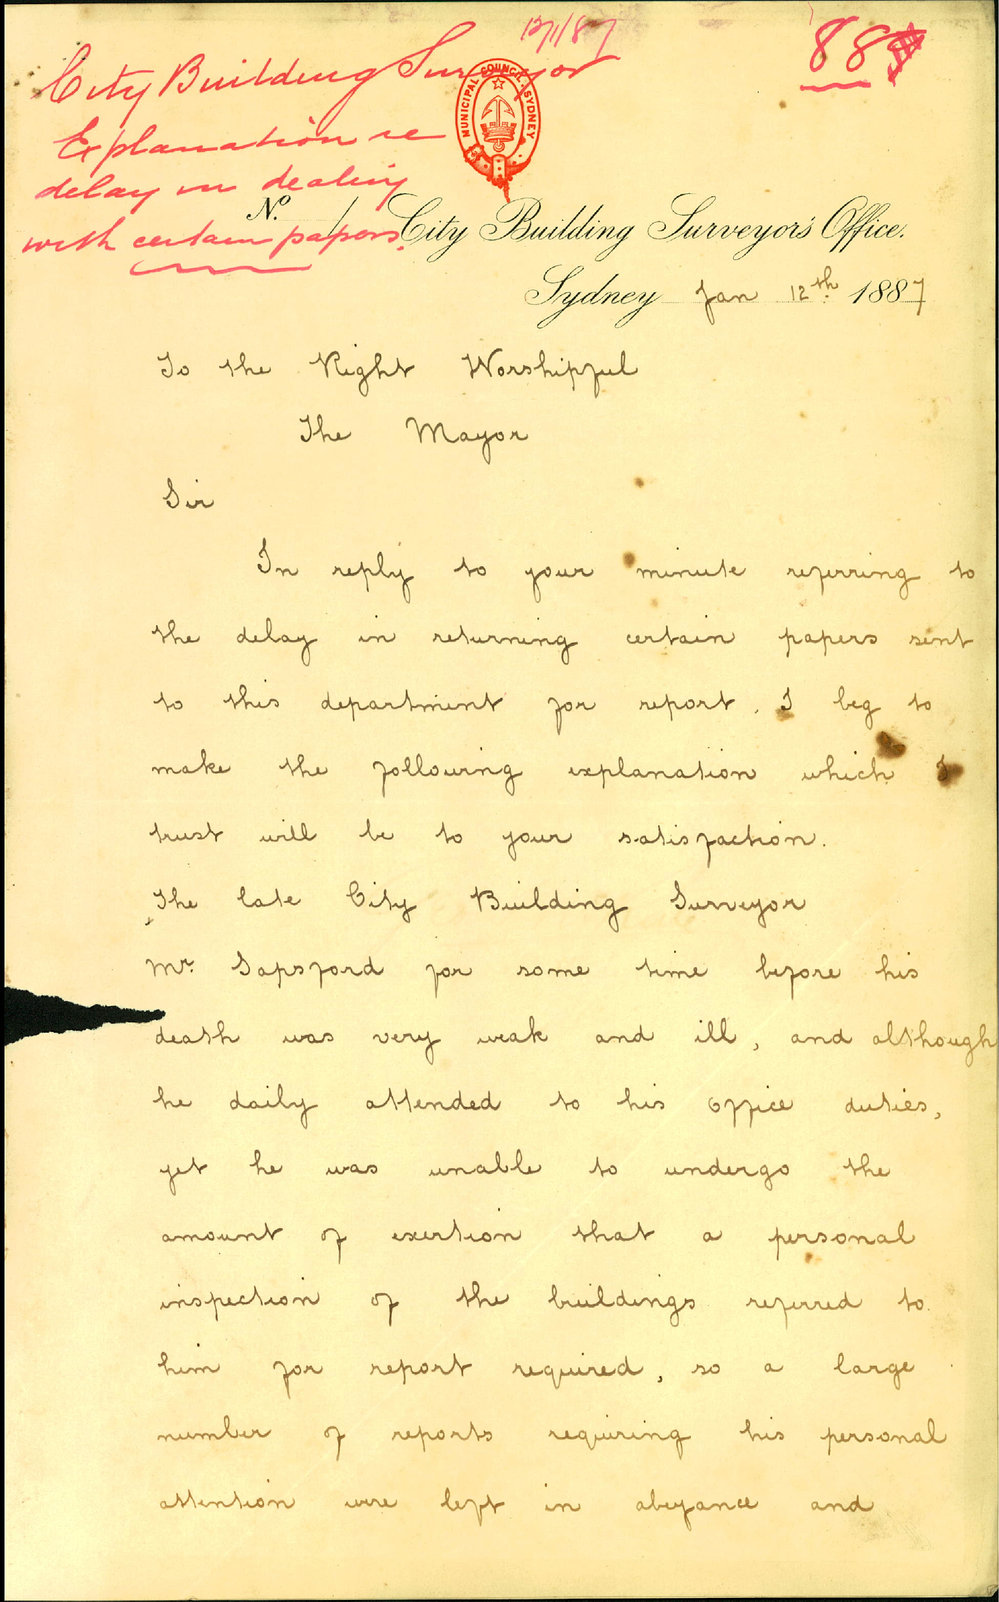 12/1/87
88
City Building Surveyor
Explanation re
delay in dealing
with certain papers.
MUNICIPAL COUNCIL SYDNEY
No. City Building Surveyor's Office.
Sydney Jan 12th 1887
To the Right Worshipful
The Mayor
Sir
In reply to your minute referring to
the delay in returning certain papers sent
to this department for report, I beg to
make the following explanation which I
trust will be to your satisfaction.
The late City Building Surveyor
Mr. Sapsford for some time before his
death was very weak and ill, and although
he daily attended to his office duties,
yet he was unable to undergo the
amount of exertion that a personal
inspection of the buildings referred to
him for report required, so a large
number of reports requiring his personal
attention were left in abeyance and